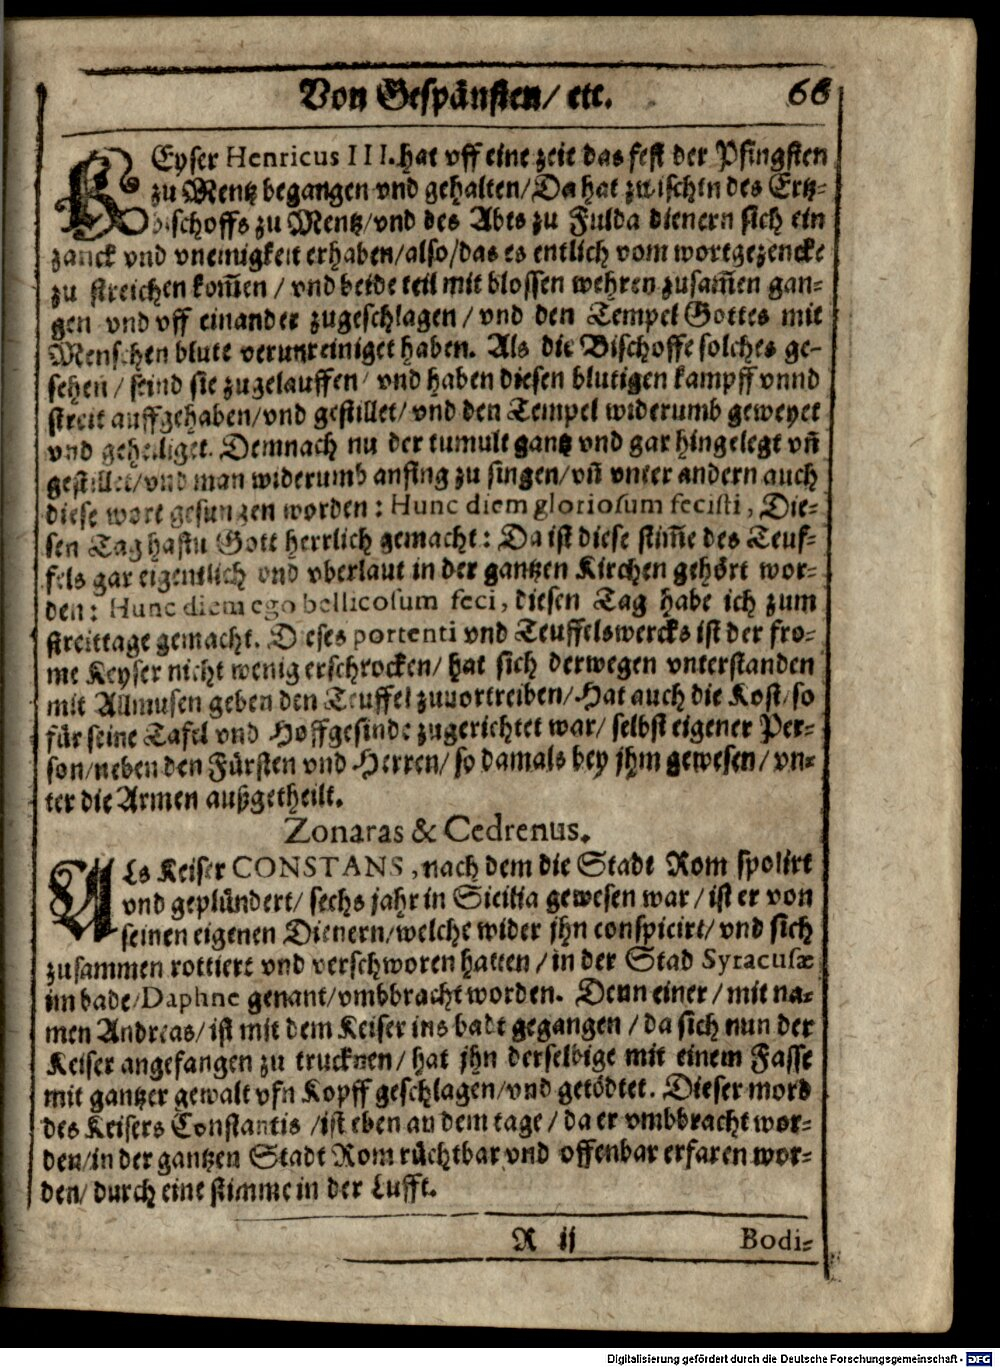 Von Gespänsten/ etc. 66
KEyser Henricus III. hat vff eine zeit das fest der Pfingsten
zu Mentz begangen vnd gehalten/ Da hat zwischen des Ertz-
bischoffs zu Mentz/ vnd des Abts zu Fulda dienern sich ein
zanck vnd vneinigkeit erhaben/ also/ das es entlich vom wortgezencke
zu streichen kom̃en / vnd beide teil mit blossen wehren zusam̃en gan-
gen vnd vff einander zugeschlagen / vnd den Tempel Gottes mit
Menschen blute verunreiniget haben. Als die Bischoffe solches ge-
sehen / seind sie zugelauffen/ vnd haben diesen blutigen kampff vnnd
streit auffgehaben/ vnd gestillet/ vnd den Tempel widerumb geweyet
vnd geheiliget. Demnach nu der tumult gantz vnd gar hingelegt vñ
gestillet/ vnd man widerumb anfing zu singen/ vñ vnter andern auch
diese wort gesungen worden : Hunc diem gloriosum fecisti, Die-
sen Tag hastu Gott herrlich gemacht : Da ist diese stim̃e des Teuf-
fels gar eigentlich vnd vberlaut in der gantzen Kirchen gehört wor-
den : Hunc diem ego bellicosum feci, diesen Tag habe ich zum
streittage gemacht. Dieses portenti vnd Teuffelswercks ist der fro-
me Keyser nicht wenig erschrocken/ hat sich derwegen vnterstanden
mit Allmusen geben den Teuffel zuuortreiben/ Hat auch die Kost/ so
für seine Tafel vnd Hoffgesinde zugerichtet war/ selbst eigener Per-
son/ neben den Fürsten vnd Herren/ so damals bey jhm gewesen / vn-
ter die Armen außgetheilt.
Zonaras & Cedrenus.
ALs Keiser CONSTANS, nach dem die Stadt Rom spolirt
vnd geplündert/ sechs jahr in Sicilia gewesen war / ist er von
seinen eigenen Dienern/ welche wider jhn conspicirt/ vnd sich
zusammen rottiert vnd verschworen hatten / in der Stad Syracusæ
im bade/ Daphne genant/ vmbbracht worden. Denn einer / mit na-
men Andreas/ ist mit dem Keiser ins badt gegangen / da sich nun der
Keiser angefangen zu trucknen/ hat jhn derselbige mit einem Fasse
mit gantzer gewalt vfn Kopff geschlagen/ vnd getödtet. Dieser mord
des Keisers Constantis / ist eben an dem tage / da er vmbbracht wor-
den/ in der gantzen Stadt Rom rüchtbar vnd offenbar erfaren wor-
den/ durch eine stimme in der Lufft.
R ij Bodi-
Digitalisierung gefördert durch die Deutsche Forschungsgemeinschaft - DFG